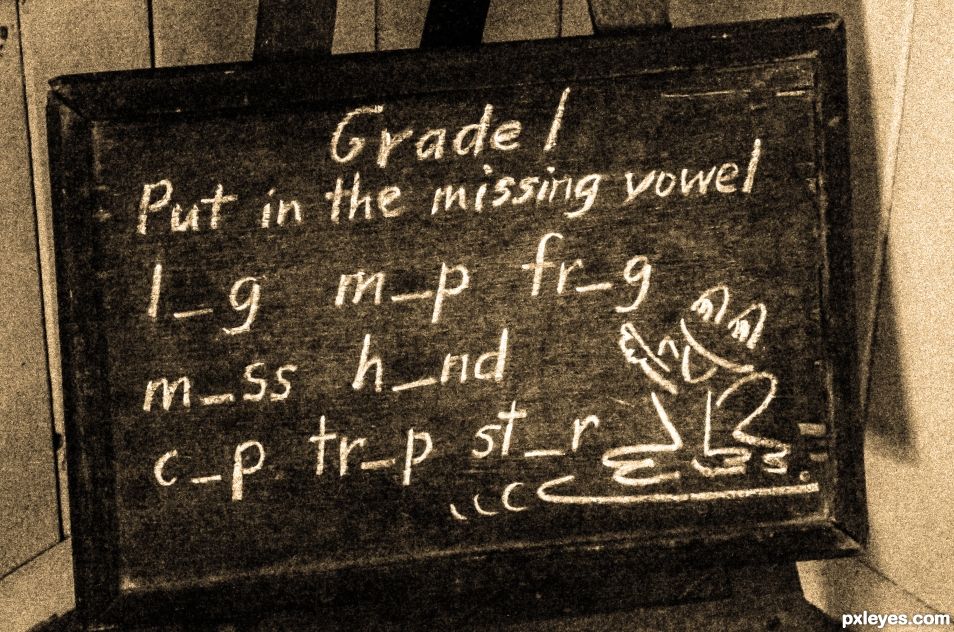 Grade 1
Put in the missing vowel
l_g m_p fr_g
m_ss h_nd
c_p tr_p st_r
pxleyes.com